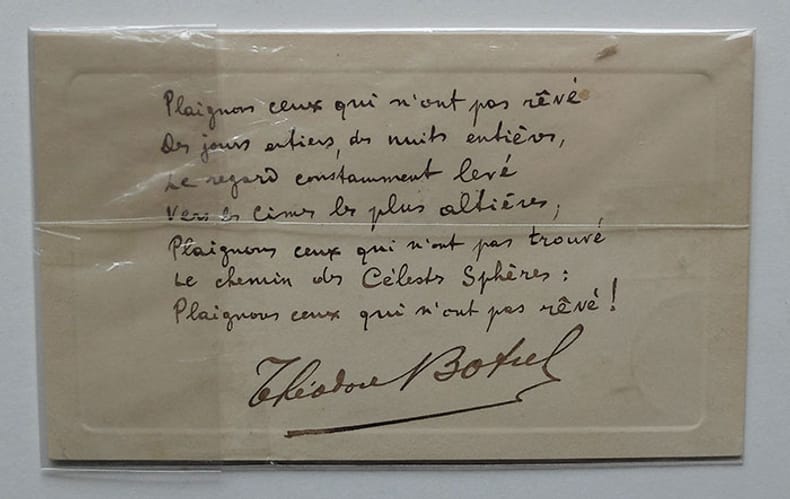 Plaignons ceux qui n'ont pas rêvé
Des jours entiers, des nuits entières,
Le regard constamment levé
Vers les Cimes les plus altières ;
Plaignons ceux qui n'ont pas trouvé
Le chemin des Célestes Sphères :
Plaignons ceux qui n'ont pas rêvé !
Théodore Botrel